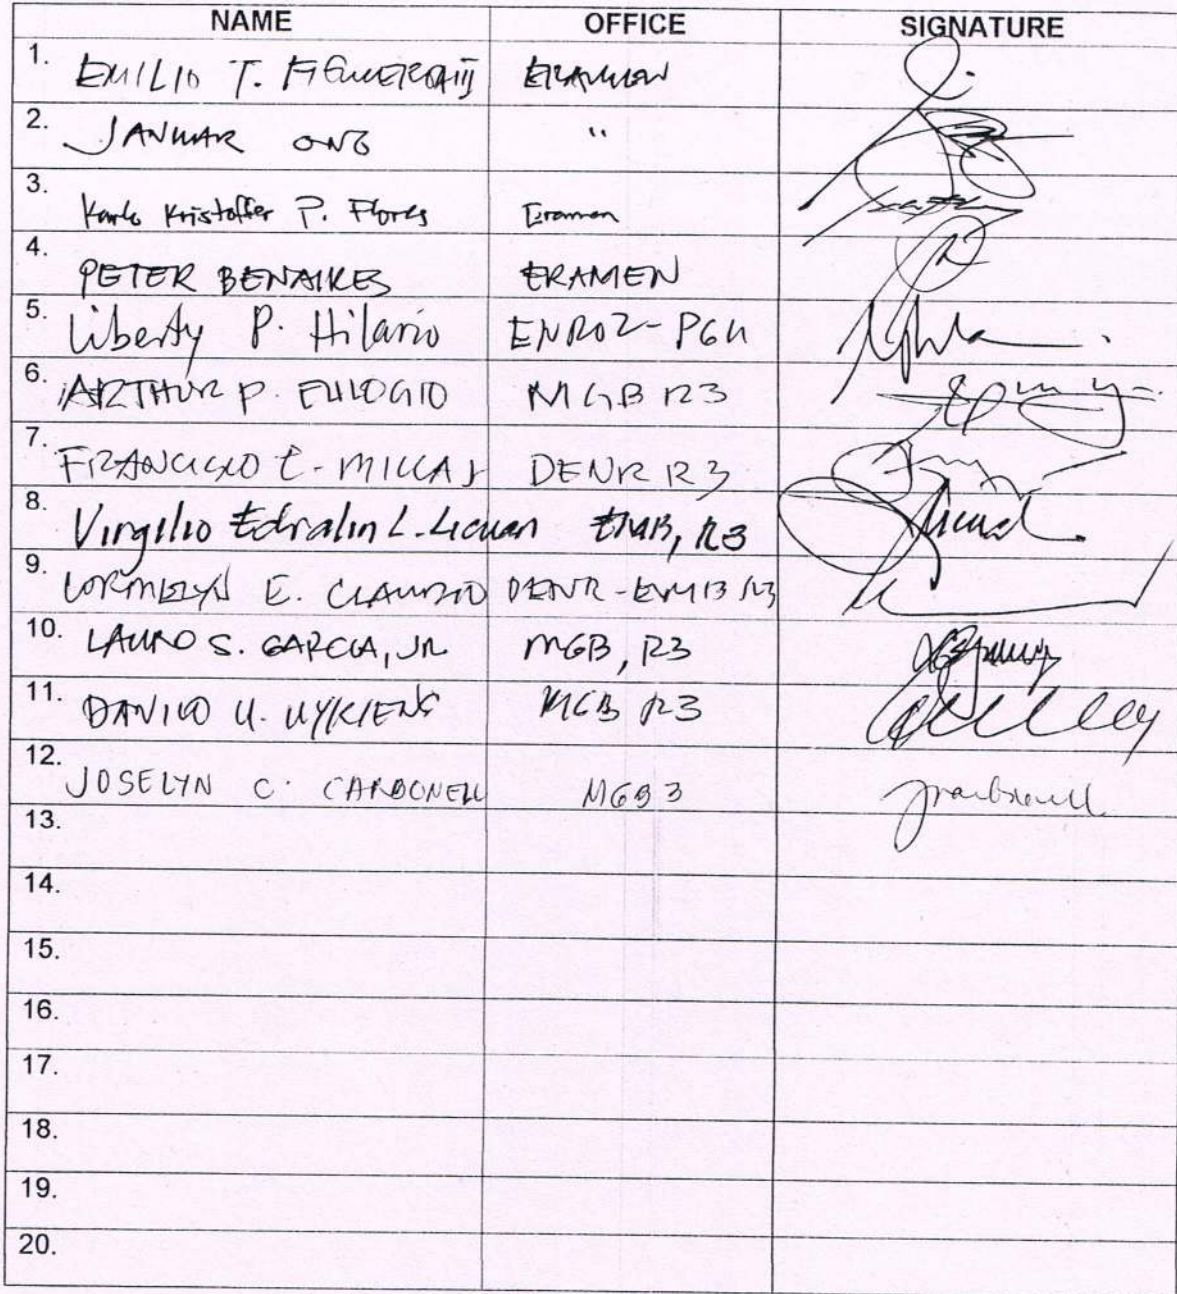 NAME OFFICE SIGNATURE
1. EMILIO T. FIGUEROA III ERAMEN
2. JANUAR ONG "
3. Karlo Kristoffer P. Flores Eramen
4. PETER BENAIRES ERAMEN
5. Liberty P. Hilario ENRO Z-PGU
6. ARTHUR P. EULOGIO MGB R3
7. FRANCISCO E. MILLA J DENR R3
8. Virgilio Edralin L. Licuan EMB, R3
9. LORMELYN E. CLAUDIO DENR-EMB R3
10. LAURO S. GARCIA, JR MGB, R3
11. DANILO U. UYKIENG MGB R3
12. JOSELYN C. CARBONELL MGB 3
13.
14.
15.
16.
17.
18.
19.
20.